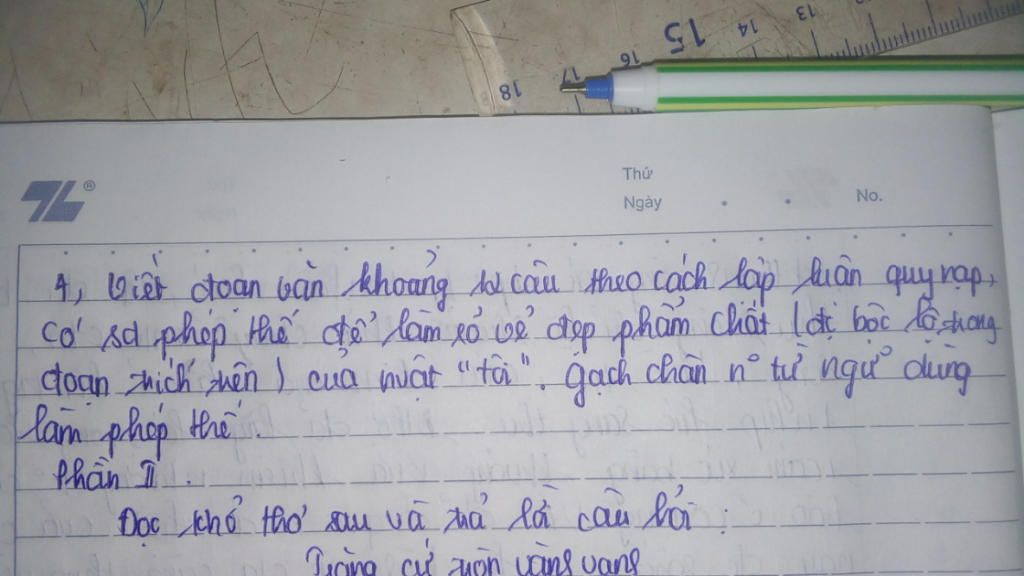 13
14
15
16
17
18
Thứ
Ngày . . No.
®
4, Viết đoạn văn khoảng câu theo cách lập luận quy nạp,
có sd phép thế để làm rõ vẻ đẹp phẩm chất (đc bộc lộ trong
đoạn trích trên) của nvật "tôi". Gạch chân n° từ ngữ dùng
làm phép thế.
Phần II.
Đọc khổ thơ sau và trả lời câu hỏi:
Trăng cứ tròn vành vạnh